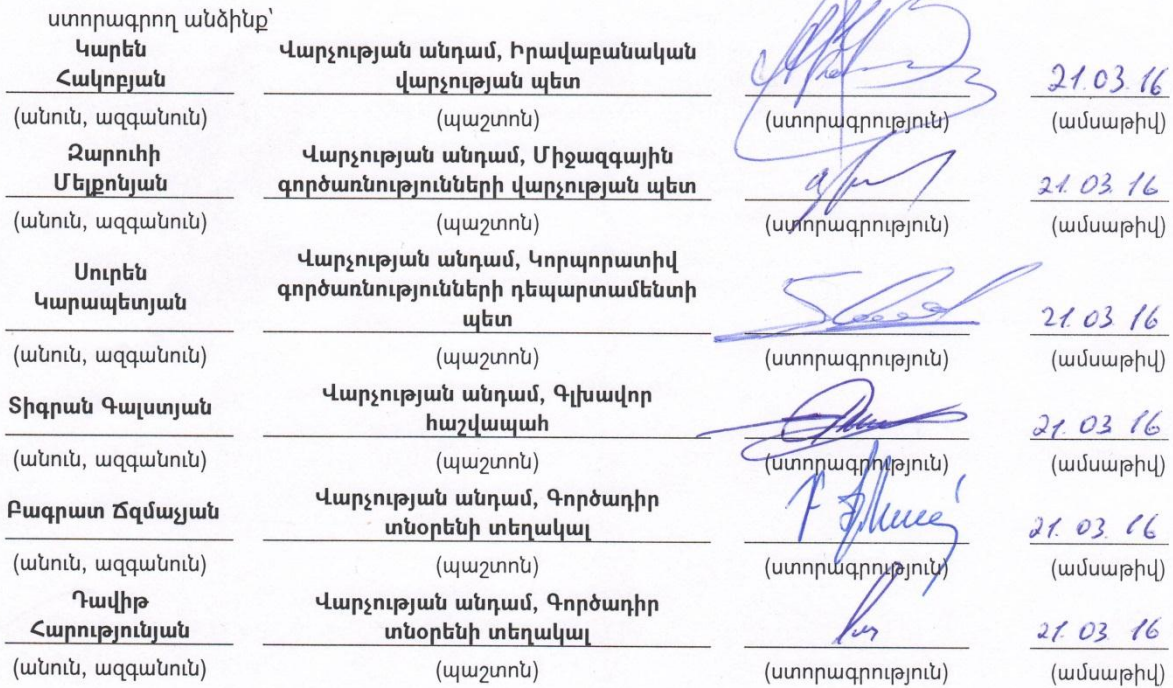 ստորագրող անձինք՝
Կարեն Վարչության անդամ, Իրավաբանական
Հակոբյան վարչության պետ 21.03.16
(անուն, ազգանուն) (պաշտոն) (ստորագրություն) (ամսաթիվ)
Զարուհի Վարչության անդամ, Միջազգային
Մելքոնյան գործառնությունների վարչության պետ 21.03.16
(անուն, ազգանուն) (պաշտոն) (ստորագրություն) (ամսաթիվ)
Վարչության անդամ, Կորպորատիվ
Սուրեն գործառնությունների դեպարտամենտի
Կարապետյան պետ 21.03.16
(անուն, ազգանուն) (պաշտոն) (ստորագրություն) (ամսաթիվ)
Տիգրան Գալստյան Վարչության անդամ, Գլխավոր
հաշվապահ 21.03.16
(անուն, ազգանուն) (պաշտոն) (ստորագրություն) (ամսաթիվ)
Բագրատ Ճզմաչյան Վարչության անդամ, Գործադիր
տնօրենի տեղակալ 21.03.16
(անուն, ազգանուն) (պաշտոն) (ստորագրություն) (ամսաթիվ)
Դավիթ Վարչության անդամ, Գործադիր
Հարությունյան տնօրենի տեղակալ 21.03.16
(անուն, ազգանուն) (պաշտոն) (ստորագրություն) (ամսաթիվ)